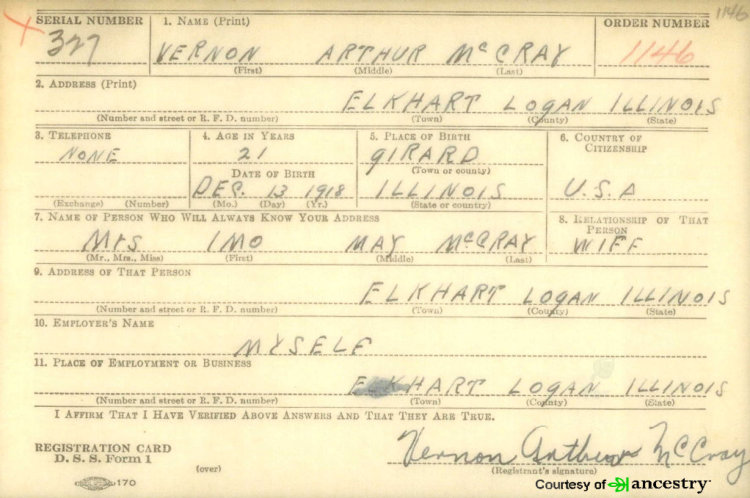 1146
SERIAL NUMBER 1. NAME (Print) ORDER NUMBER
X 327 VERNON ARTHUR McCRAY 1146
(First) (Middle) (Last)
2. ADDRESS (Print)
ELKHART LOGAN ILLINOIS
(Number and street or R. F. D. number) (Town) (County) (State)
3. TELEPHONE 4. AGE IN YEARS 5. PLACE OF BIRTH 6. COUNTRY OF CITIZENSHIP
NONE 21 GIRARD
(Town or county)
DATE OF BIRTH
DEC. 13 1918 ILLINOIS U.S.A
(Exchange) (Number) (Mo.) (Day) (Yr.) (State or country)
7. NAME OF PERSON WHO WILL ALWAYS KNOW YOUR ADDRESS 8. RELATIONSHIP OF THAT PERSON
MRS IMO MAY McCRAY WIFE
(Mr., Mrs., Miss) (First) (Middle) (Last)
9. ADDRESS OF THAT PERSON
ELKHART LOGAN ILLINOIS
(Number and street or R. F. D. number) (Town) (County) (State)
10. EMPLOYER'S NAME
MYSELF
11. PLACE OF EMPLOYMENT OR BUSINESS
ELKHART LOGAN ILLINOIS
(Number and street or R. F. D. number) (Town) (County) (State)
I AFFIRM THAT I HAVE VERIFIED ABOVE ANSWERS AND THAT THEY ARE TRUE.
REGISTRATION CARD
D. S. S. Form 1 Vernon Arthur McCray
(over) (Registrant's signature)
170
Courtesy of ancestry